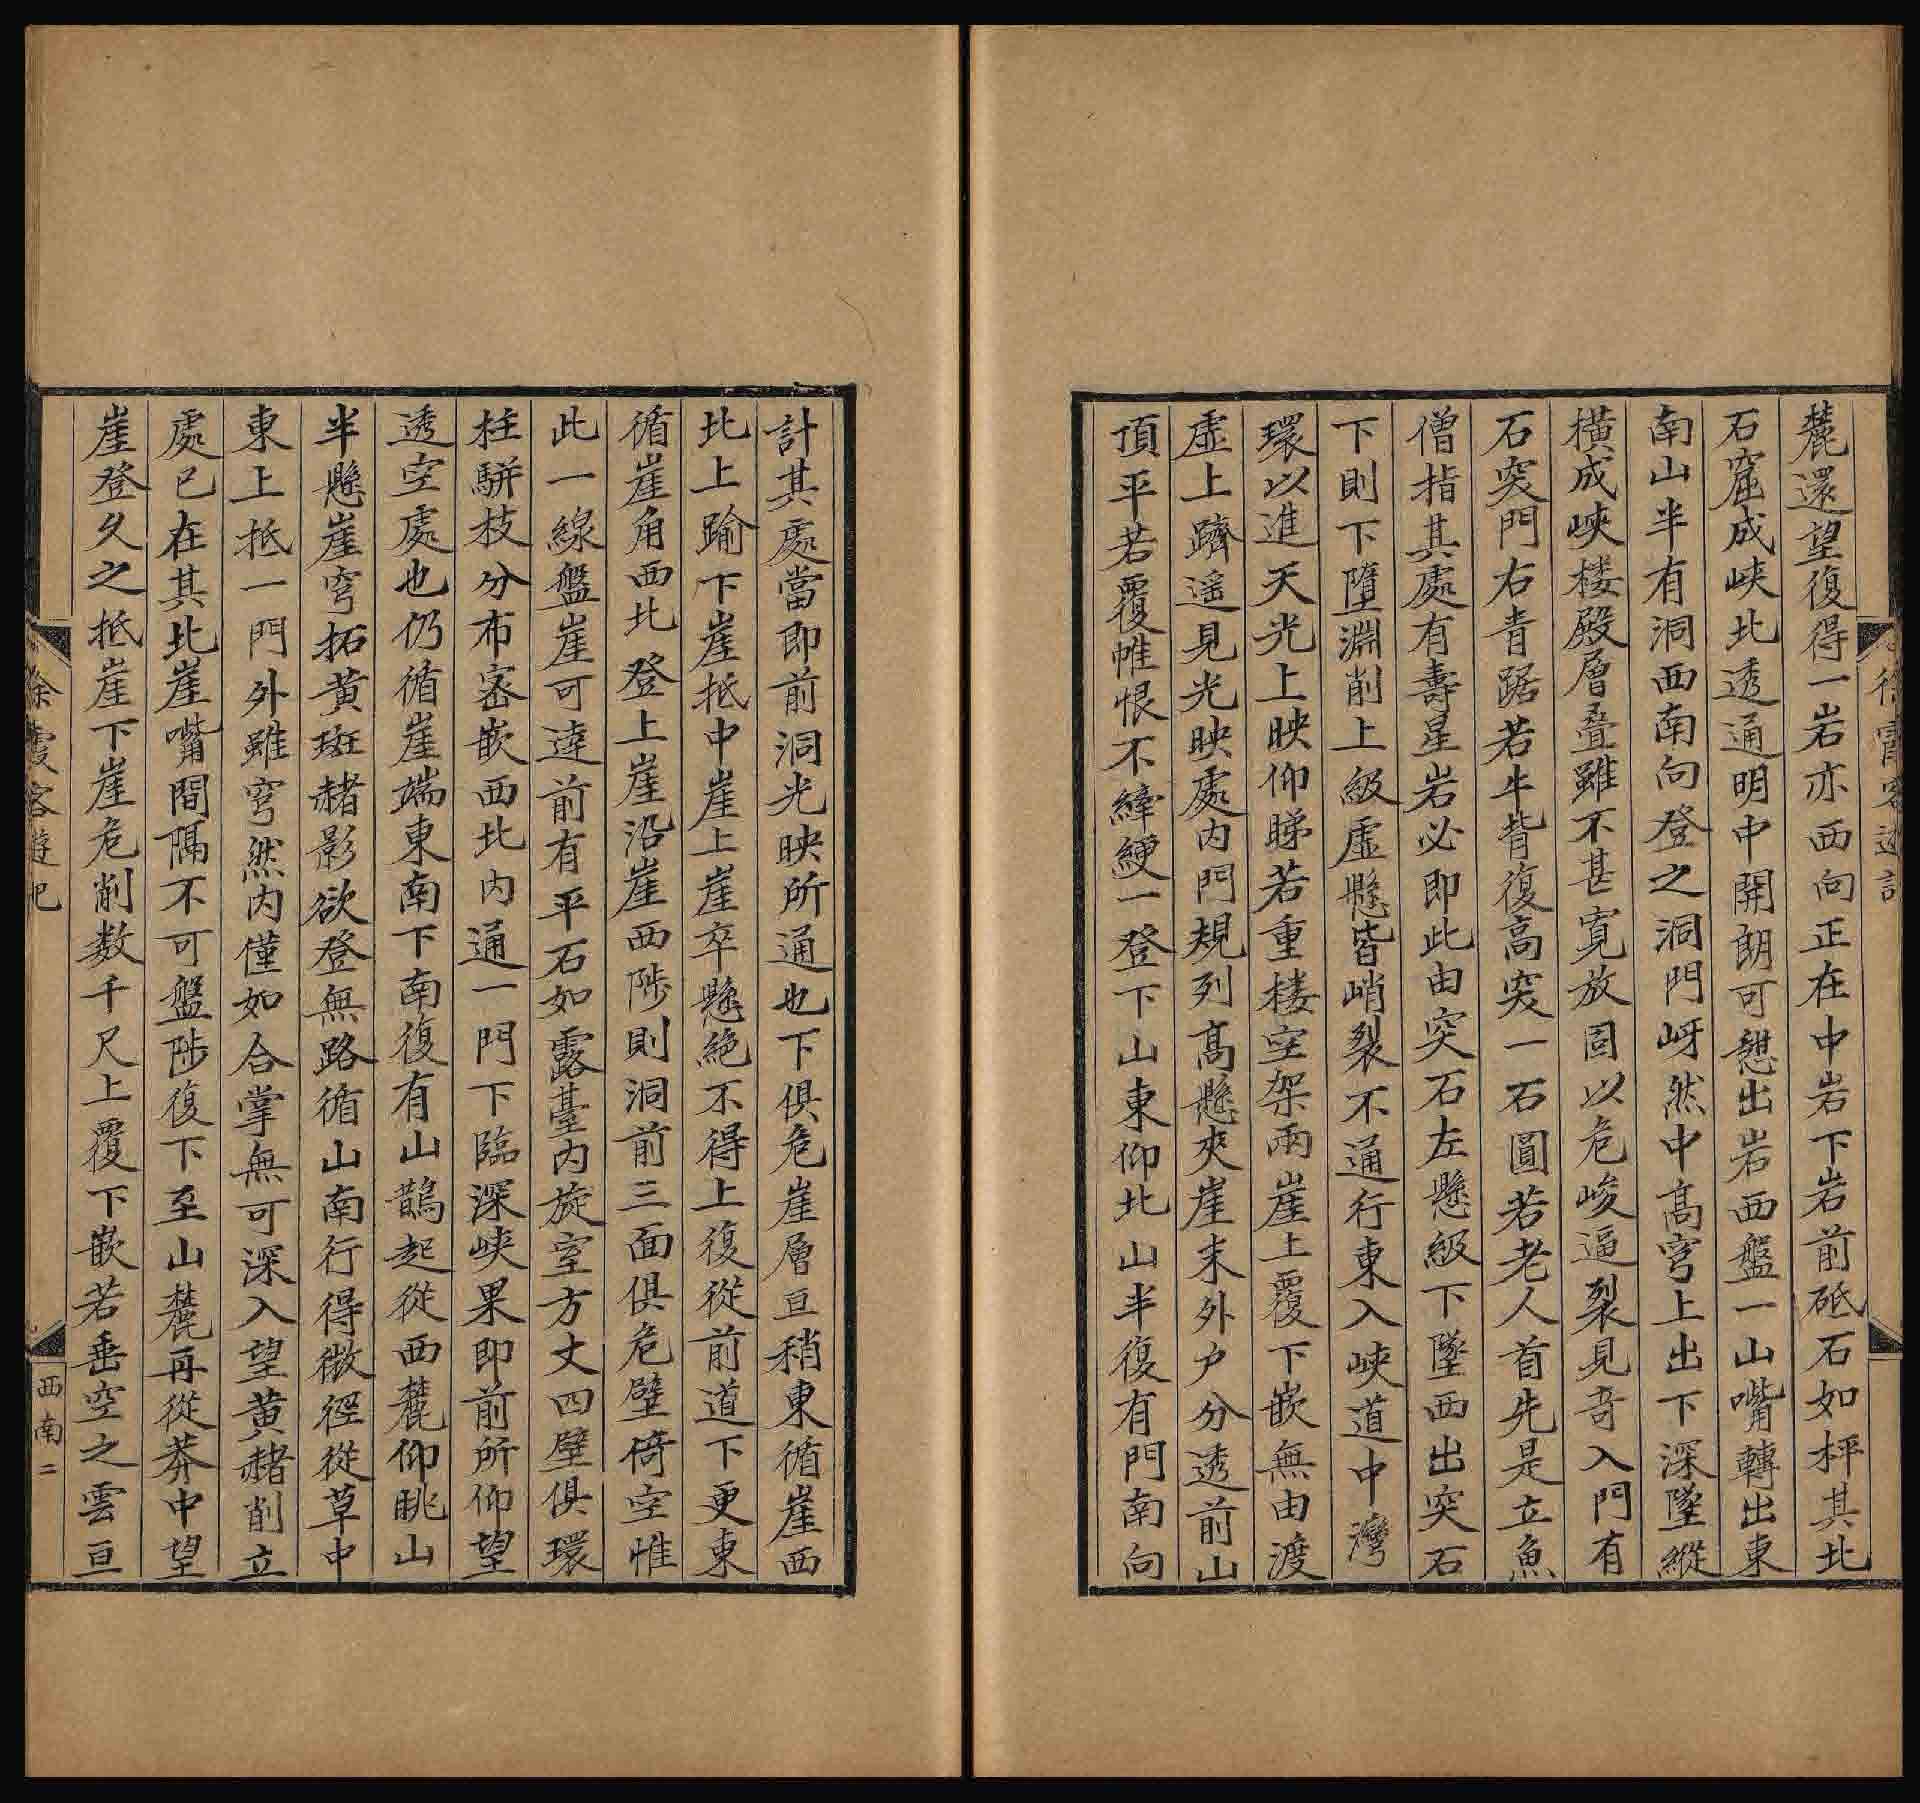 徐霞客遊記
麓還望復得一岩亦西向正在中岩下岩前砥石如枰其北
石窟成峽北透通明中開朗可憇出岩西盤一山嘴轉出東
南山半有洞西南向登之洞門岈然中高穹上出下深墜縱
橫成峽楼殿層疊雖不甚寛放固以危峻逼裂見竒入門有
石突門右青踞若牛背復高突一石圓若老人首先是立魚
僧指其處有壽星岩必即此由突石左懸級下墜西出突石
下則下墮淵削上級虛懸皆峭裂不通行東入峽道中灣
環以進天光上映仰睇若重楼空架兩崖上覆下嵌無由渡
虛上躋遥見光映處内門規列高懸夾崖末外户分透前山
頂平若覆帷恨不縴綆一登下山東仰北山半復有門南向
計其處當即前洞光映所通也下俱危崖層亘稍東循崖西
北上踰下崖抵中崖上崖卒懸絶不得上復從前道下更東
循崖角西北登上崖沿崖西陟則洞前三面俱危壁倚空惟
此一線盤崖可逵前有平石如露臺内旋室方丈四壁俱環
柱駢枝分布宻嵌西北内通一門下臨深峽果即前所仰望
透空處也仍循崖端東南下南復有山鵲起從西麓仰眺山
半懸崖穹拓黄斑赭影欲登無路循山南行得微徑從草中
東上抵一門外雖穹然内僅如合掌無可深入望黄赭削立
處已在其北崖嘴間隔不可盤陟復下至山麓再從莽中望
崖登久之抵崖下崖危削数千尺上覆下嵌若垂空之雲亘
徐霞客遊記
西南二